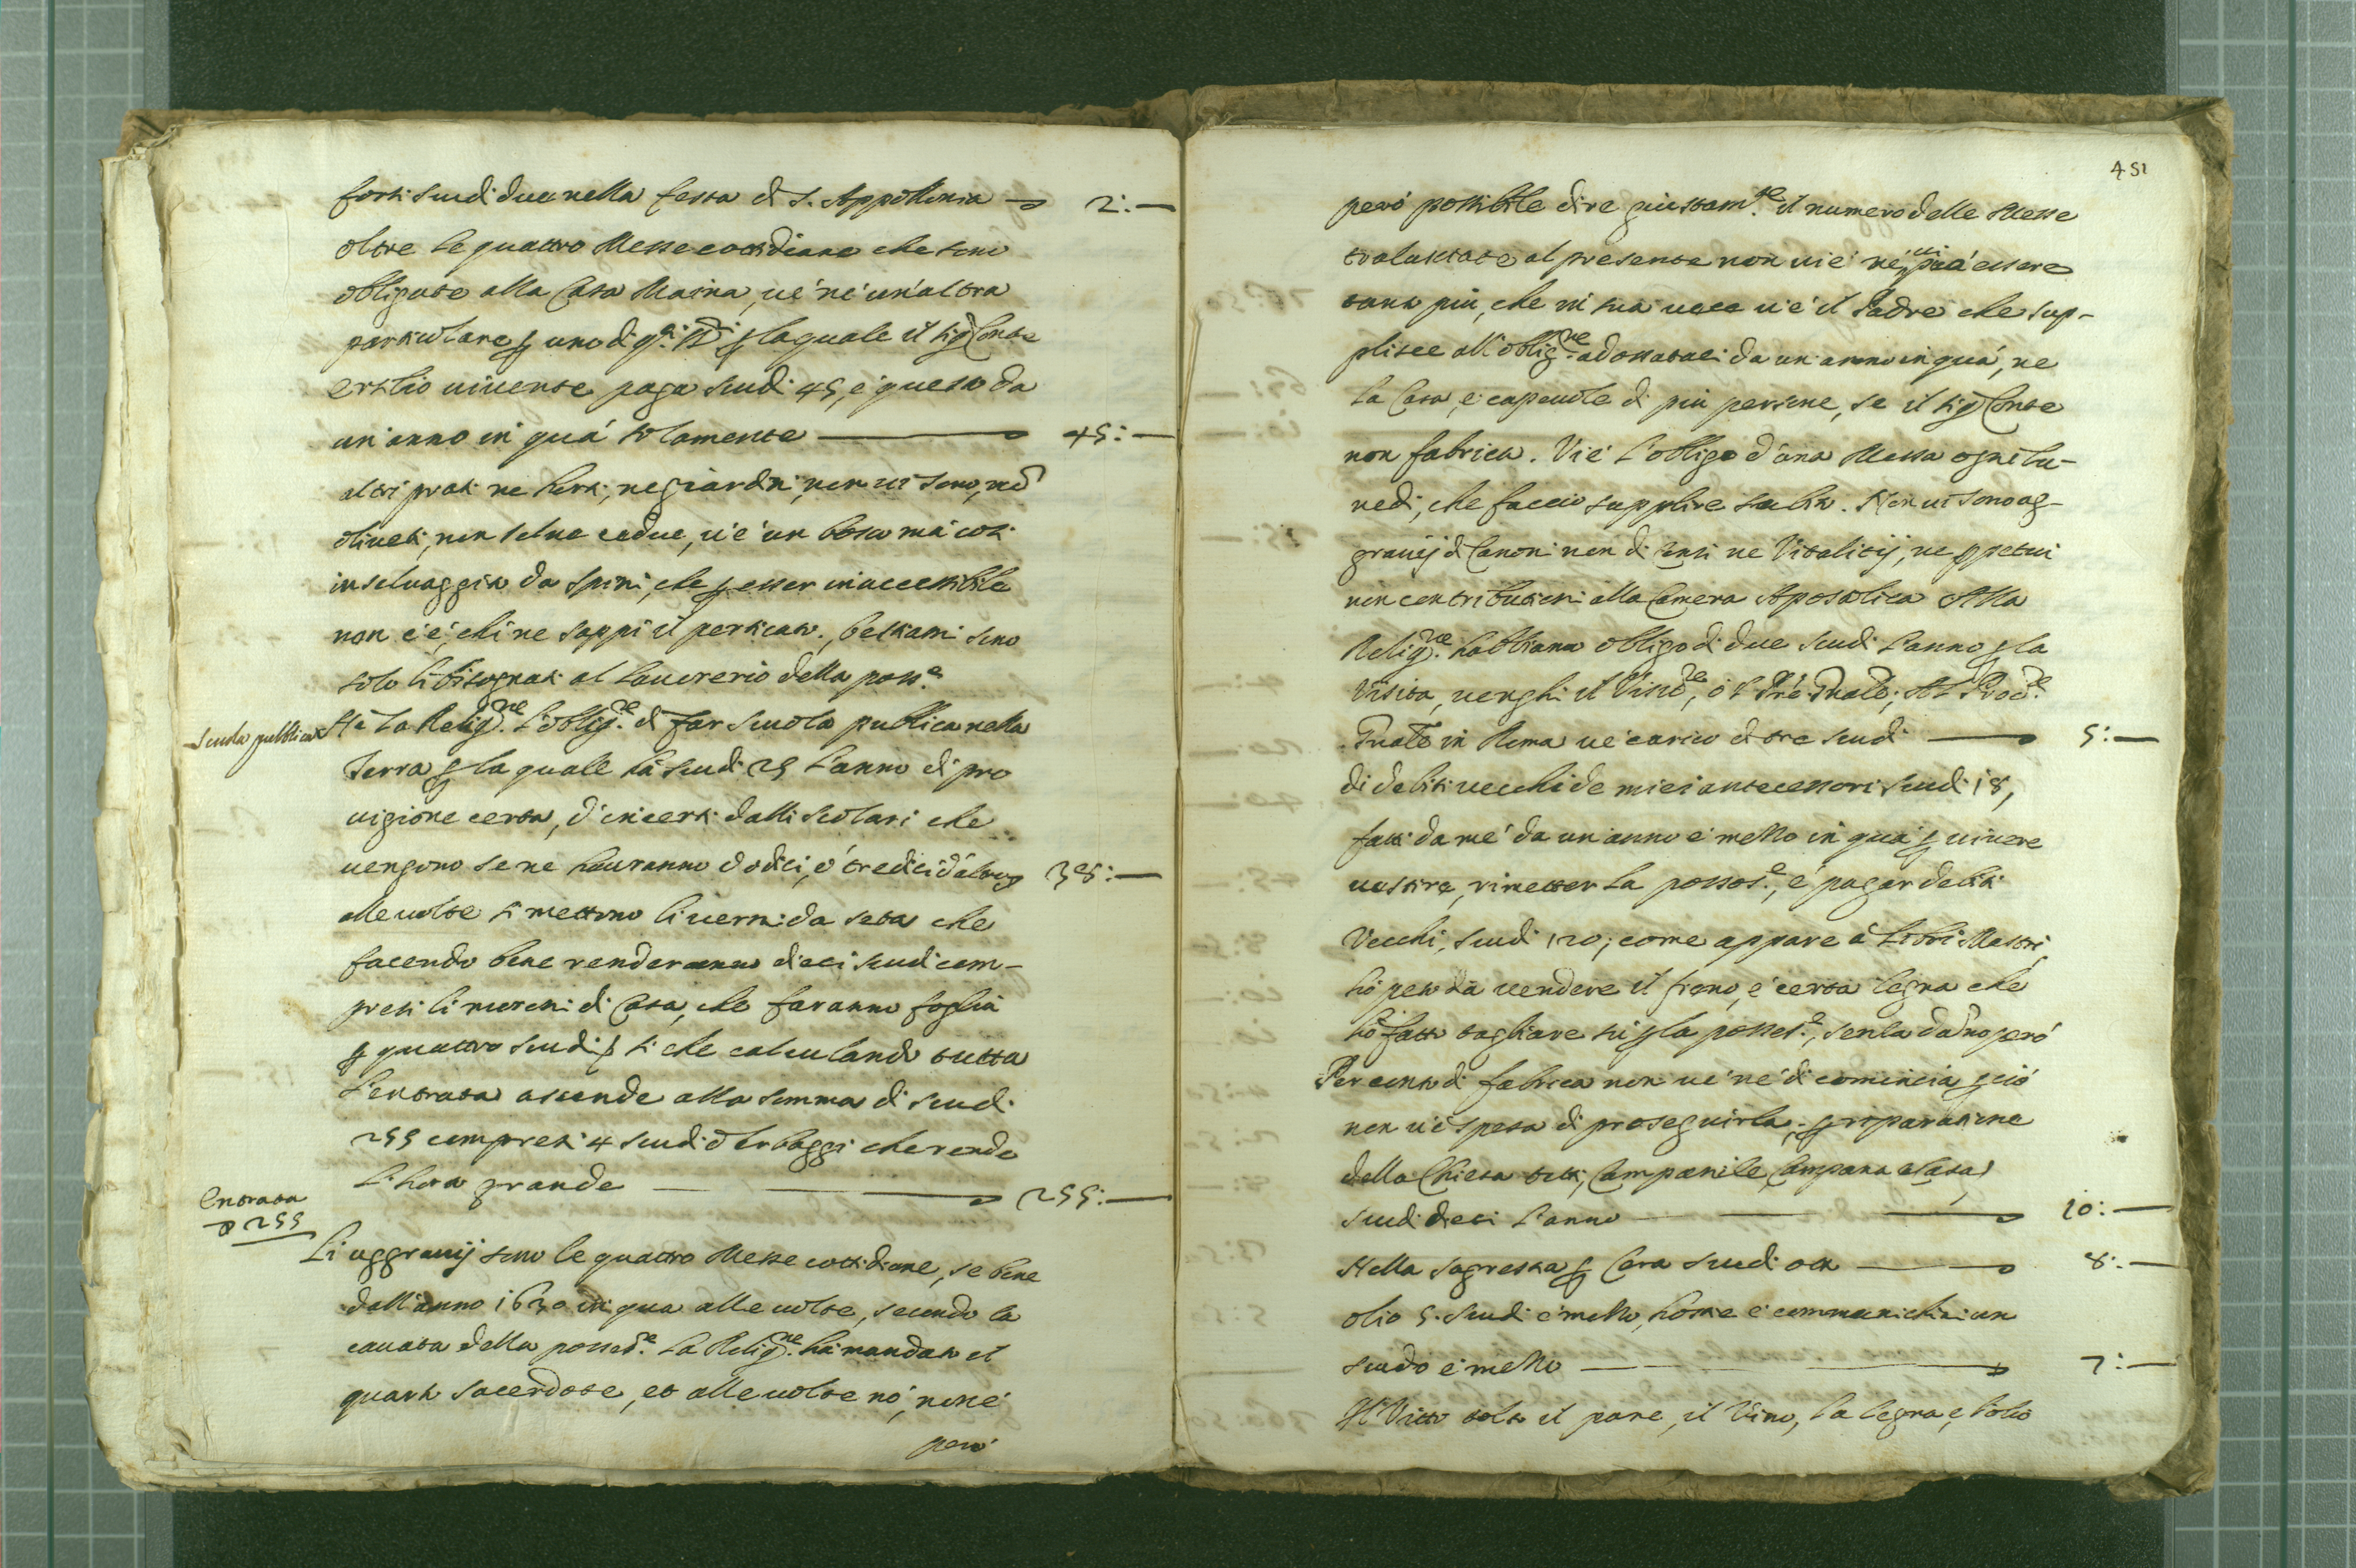 forsi scudi due nella festa di S. Appollonia 2:
oltre le quattro Messe cottidiane che sono
obligate alla Casa Maina, ve n'è un'altra
particolare p uno di qti Sri p la quale il sigr Conte
ersilio vivente paga scudi 45, e questo da
un'anno in quà solamente 45:
altri prati ne horti, ne giardini, non vi sono, nò
oliveti, non selve cedue, v'è un bosco mà così
inselvaggito da spini, che p esser inaccessibile
non c'è, chi ne sappi il perticato, bestiami sono
solo li bisognati al lavorerio della posse
Scuola publica
Hà la Religne l'obligne di far scuola publica nella
Terra p la quale hà scudi 25 l'anno di pro
vigione certa, d'incerti dalli scolari che
vengono se ne hauranno dodici, ò tredici d'altro 38:
alle volte si mettono li vermi da seta che
facendo bene renderanno dieci scudi com-
presi li moroni di Casa, che faranno foglia
p quattro scudi, si che calculando tutta
l'entrata ascende alla somma di scudi
255 compresi 4 scudi d'herbaggi che rende
l'hora grande 255:
Entrata
255
Li aggravij sono le quattro Messe cottidiane, se bene
dall'anno 1630 in qua alle volte, secondo la
cavata della possese la Religne hà mandato il
quarto sacerdote, et alle volte nò, non è
però
451
però possibile dire giustamte il numero delle Messe
tralasciate al presente non vi è nè vi può essere
tanto più, che in sua vece v'è il Padre che sup-
plisce all'obligne adossataci da un anno in quà, ne
la Casa, è capevole di più persone, se il sigr Conte
non fabrica. Vi è l'obligo d'una Messa ogni lu-
nedi, che faccio supplire subito. Non vi sono ag-
gravij di Canoni non di Censi ne Vitalitij, ne ppetui
non contributioni alla Camera Apostolica Alla
Religne habbiamo obligo di due scudi l'anno p la
Visita, venghi il Visitre, ò l Pre Pnale; Al Procre
Gnale in Roma v'è carico di tre scudi 5:
di debiti vecchi de miei antecessori scudi 18,
fatti da mè da un anno e mezzo in quà p vivere
vestire, rimetter la possese, e pagar debiti
Vecchi, scudi 120; come appare à Libri Mastri
hò però da vendere il fieno, e certa legna che
hò fatto tagliare sù p la possese, senza danno però
Per conto di fabrica non ve n'è di comincia p ciò
non v'è spesa di proseguirla, p riparatione
della Chiesa tetti, Campanile, Campana e Casa,
scudi dieci l'anno 10:
Nella sagrestia p Cera scudi otto 8:
olio 5. scudi e mezzo, hostie e communichini un
scudo e mezzo 7:
Il Vitto tolto il pane, il Vino, la legna, e l'olio